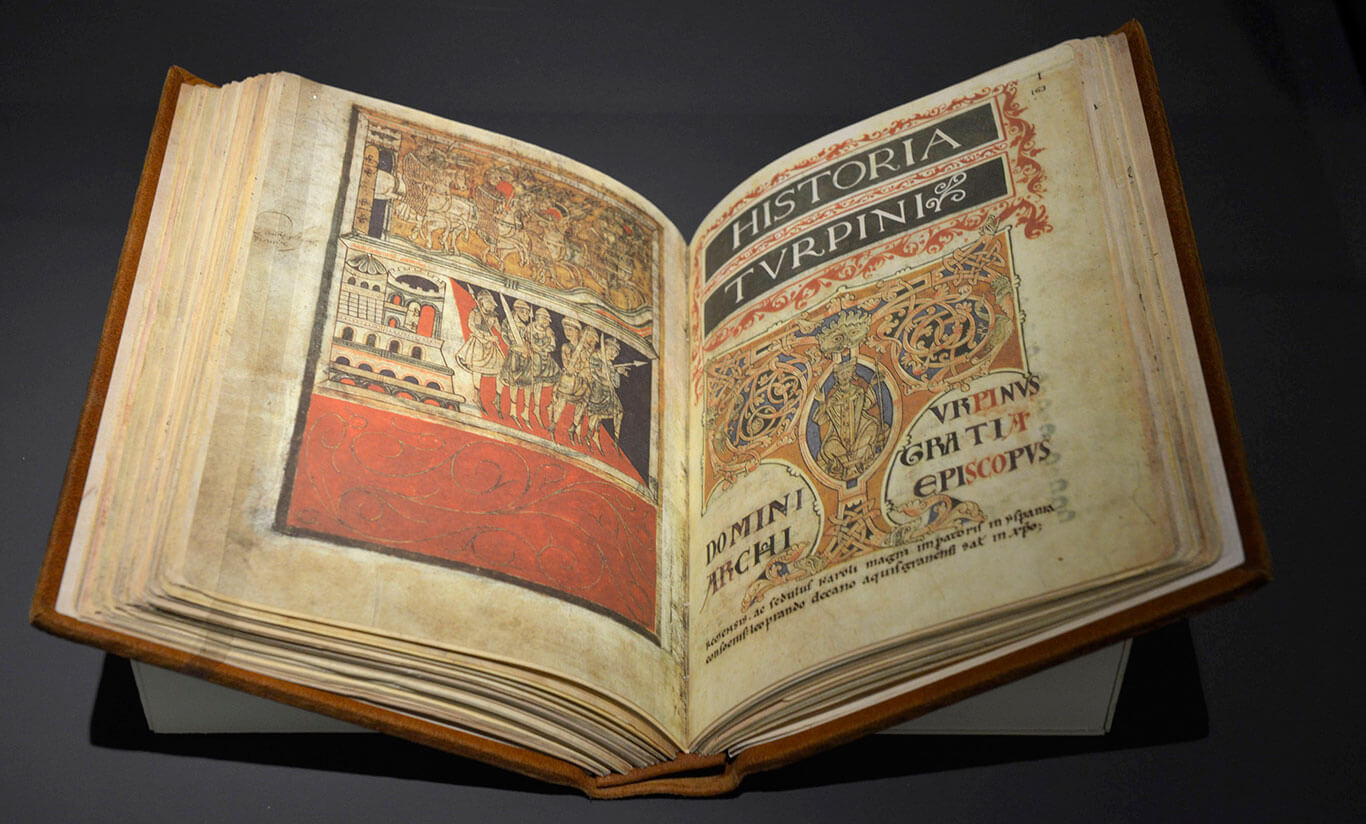 I
163
HISTORIA
TVRPINI
TVRPINVS
DOMINI GRATIA
ARCHI EPISCOPVS
Remensis. ac sedulus karoli magni imperatoris in yspania
consocius. leoprando decano aquisgranensi sał in xpo;